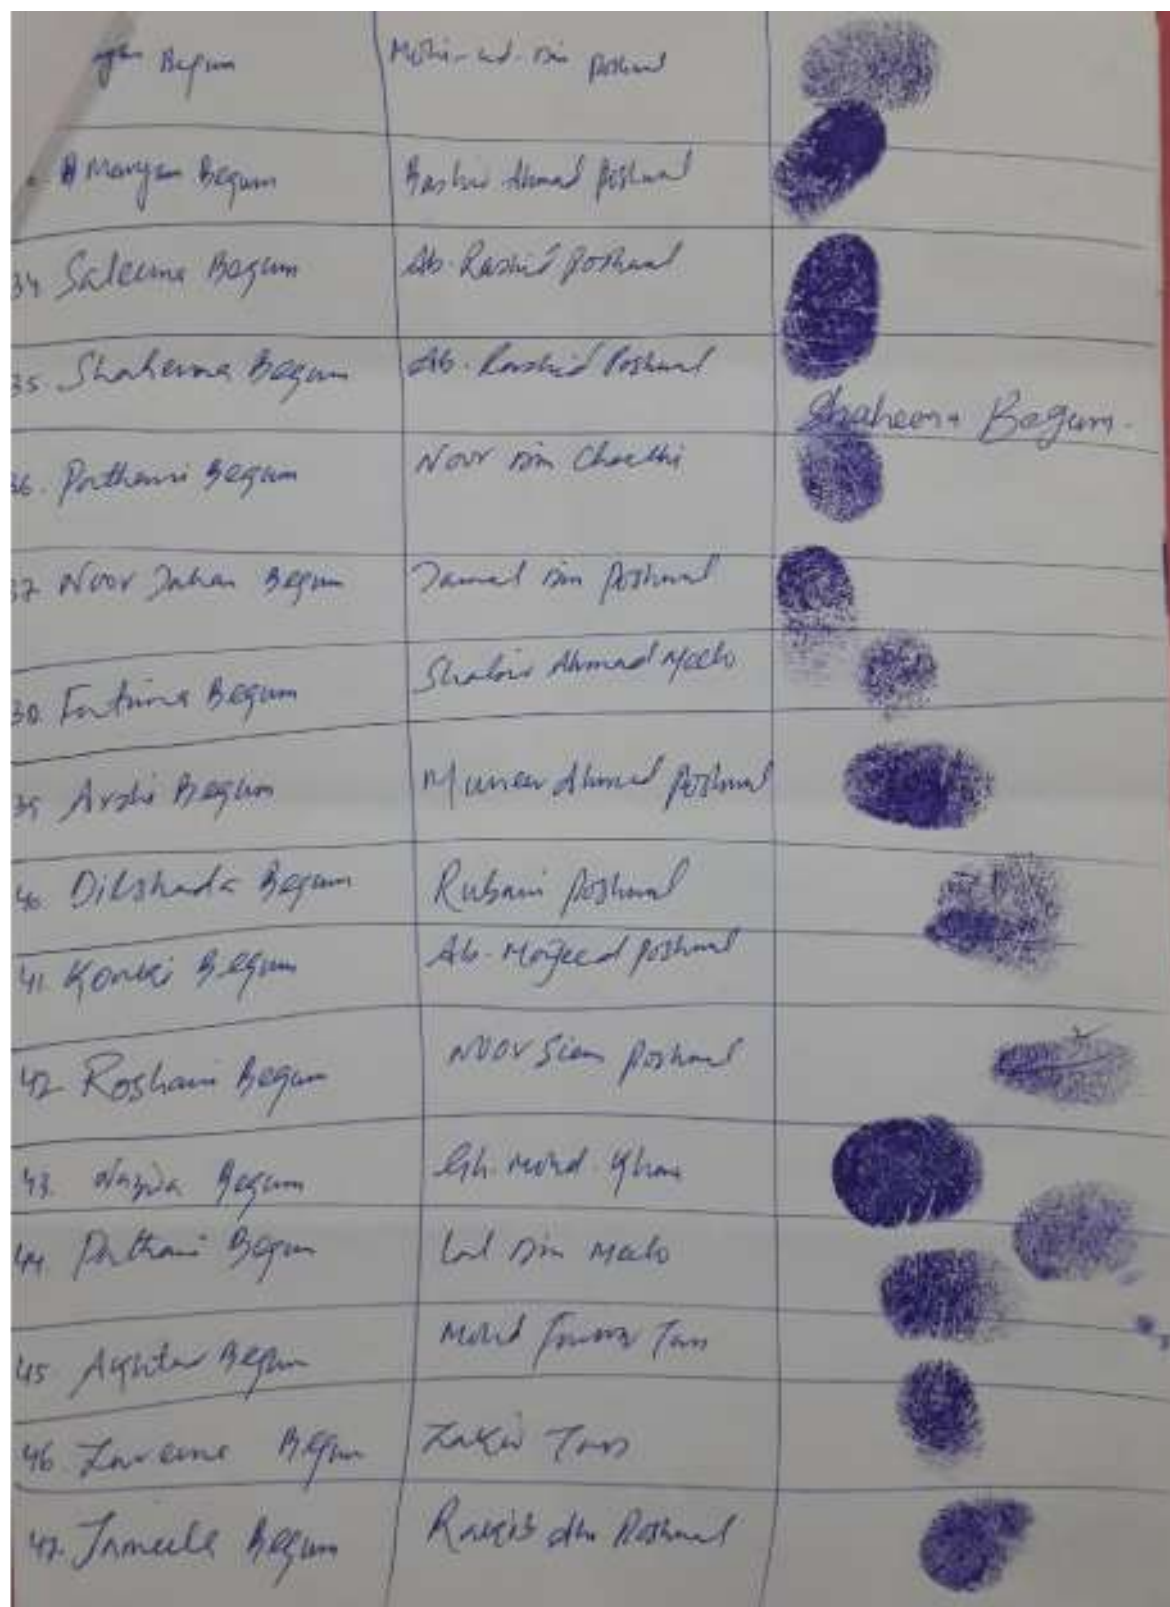 Begum Mohi-ud-Din Poshwal
Maryam Begum Bashir Ahmad Poshwal
34 Saleema Begum Ab. Rashid Poshwal
35 Shaheena Begum Ab. Rashid Poshwal
Shaheena Begum.
36. Pathani Begum Noor Din Chechi
37 Noor Jahan Begum Jamal Din Poshwal
38. Fatima Begum Shabir Ahmad
39 Arshi Begum Muneer Ahmad Poshwal
40 Dilshada Begum Rubani Poshwal
41. Begum Ab. Majeed Poshwal
42 Roshani Begum Noor Poshwal
43. Nazia Begum Gh. Mohd.
44. Pathani Begum Lal Din
45 Akhter Begum Mohd
46 Begum Zakir
47. Jameela Begum Din Poshwal